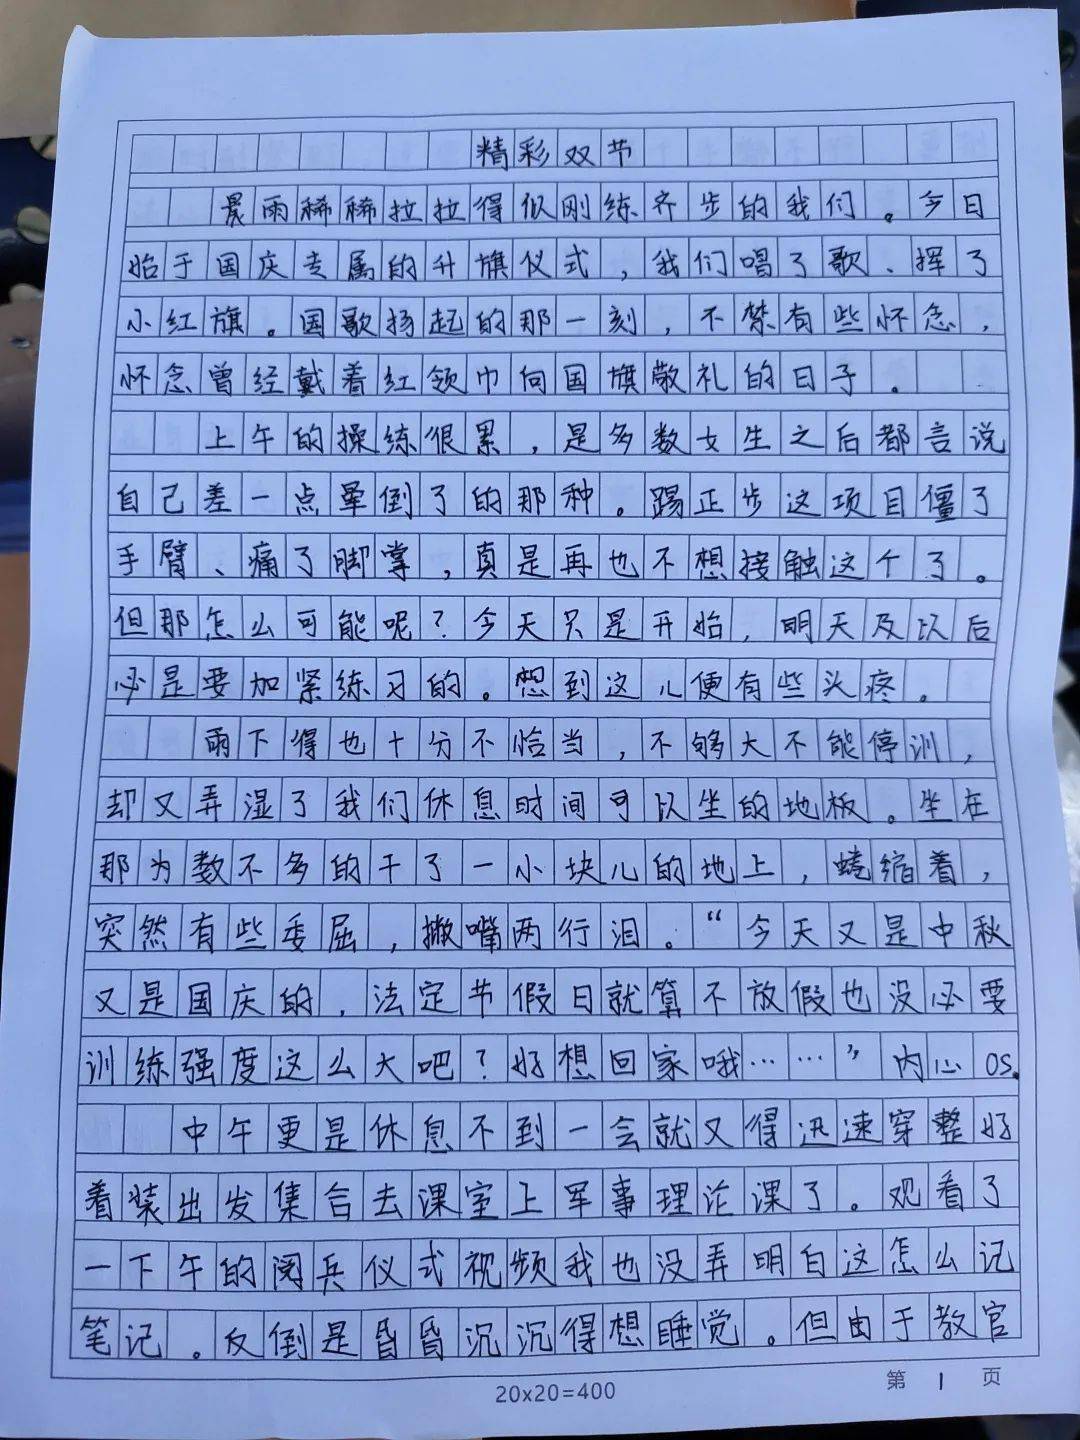 精彩双节
晨雨稀稀拉拉得似刚练齐步的我们。今日
始于国庆专属的升旗仪式，我们唱了歌、挥了
小红旗。国歌扬起的那一刻，不禁有些怀念，
怀念曾经戴着红领巾向国旗敬礼的日子。
上午的操练很累，是多数女生之后都言说
自己差一点晕倒了的那种。踢正步这项目僵了
手臂、痛了脚掌，真是再也不想接触这个了。
但那怎么可能呢？今天只是开始，明天及以后
必是要加紧练习的。想到这儿便有些头疼。
雨下得也十分不恰当，不够大不能停训，
却又弄湿了我们休息时间可以坐的地板。坐在
那为数不多的干了一小块儿的地上，蜷缩着，
突然有些委屈，撇嘴两行泪。“今天又是中秋
又是国庆的，法定节假日就算不放假也没必要
训练强度这么大吧？好想回家哦……”内心OS.
中午更是休息不到一会就又得迅速穿整好
着装出发集合去课室上军事理论课了。观看了
一下午的阅兵仪式视频我也没弄明白这怎么记
笔记。反倒是昏昏沉沉得想睡觉。但由于教官
20x20=400
第 1 页